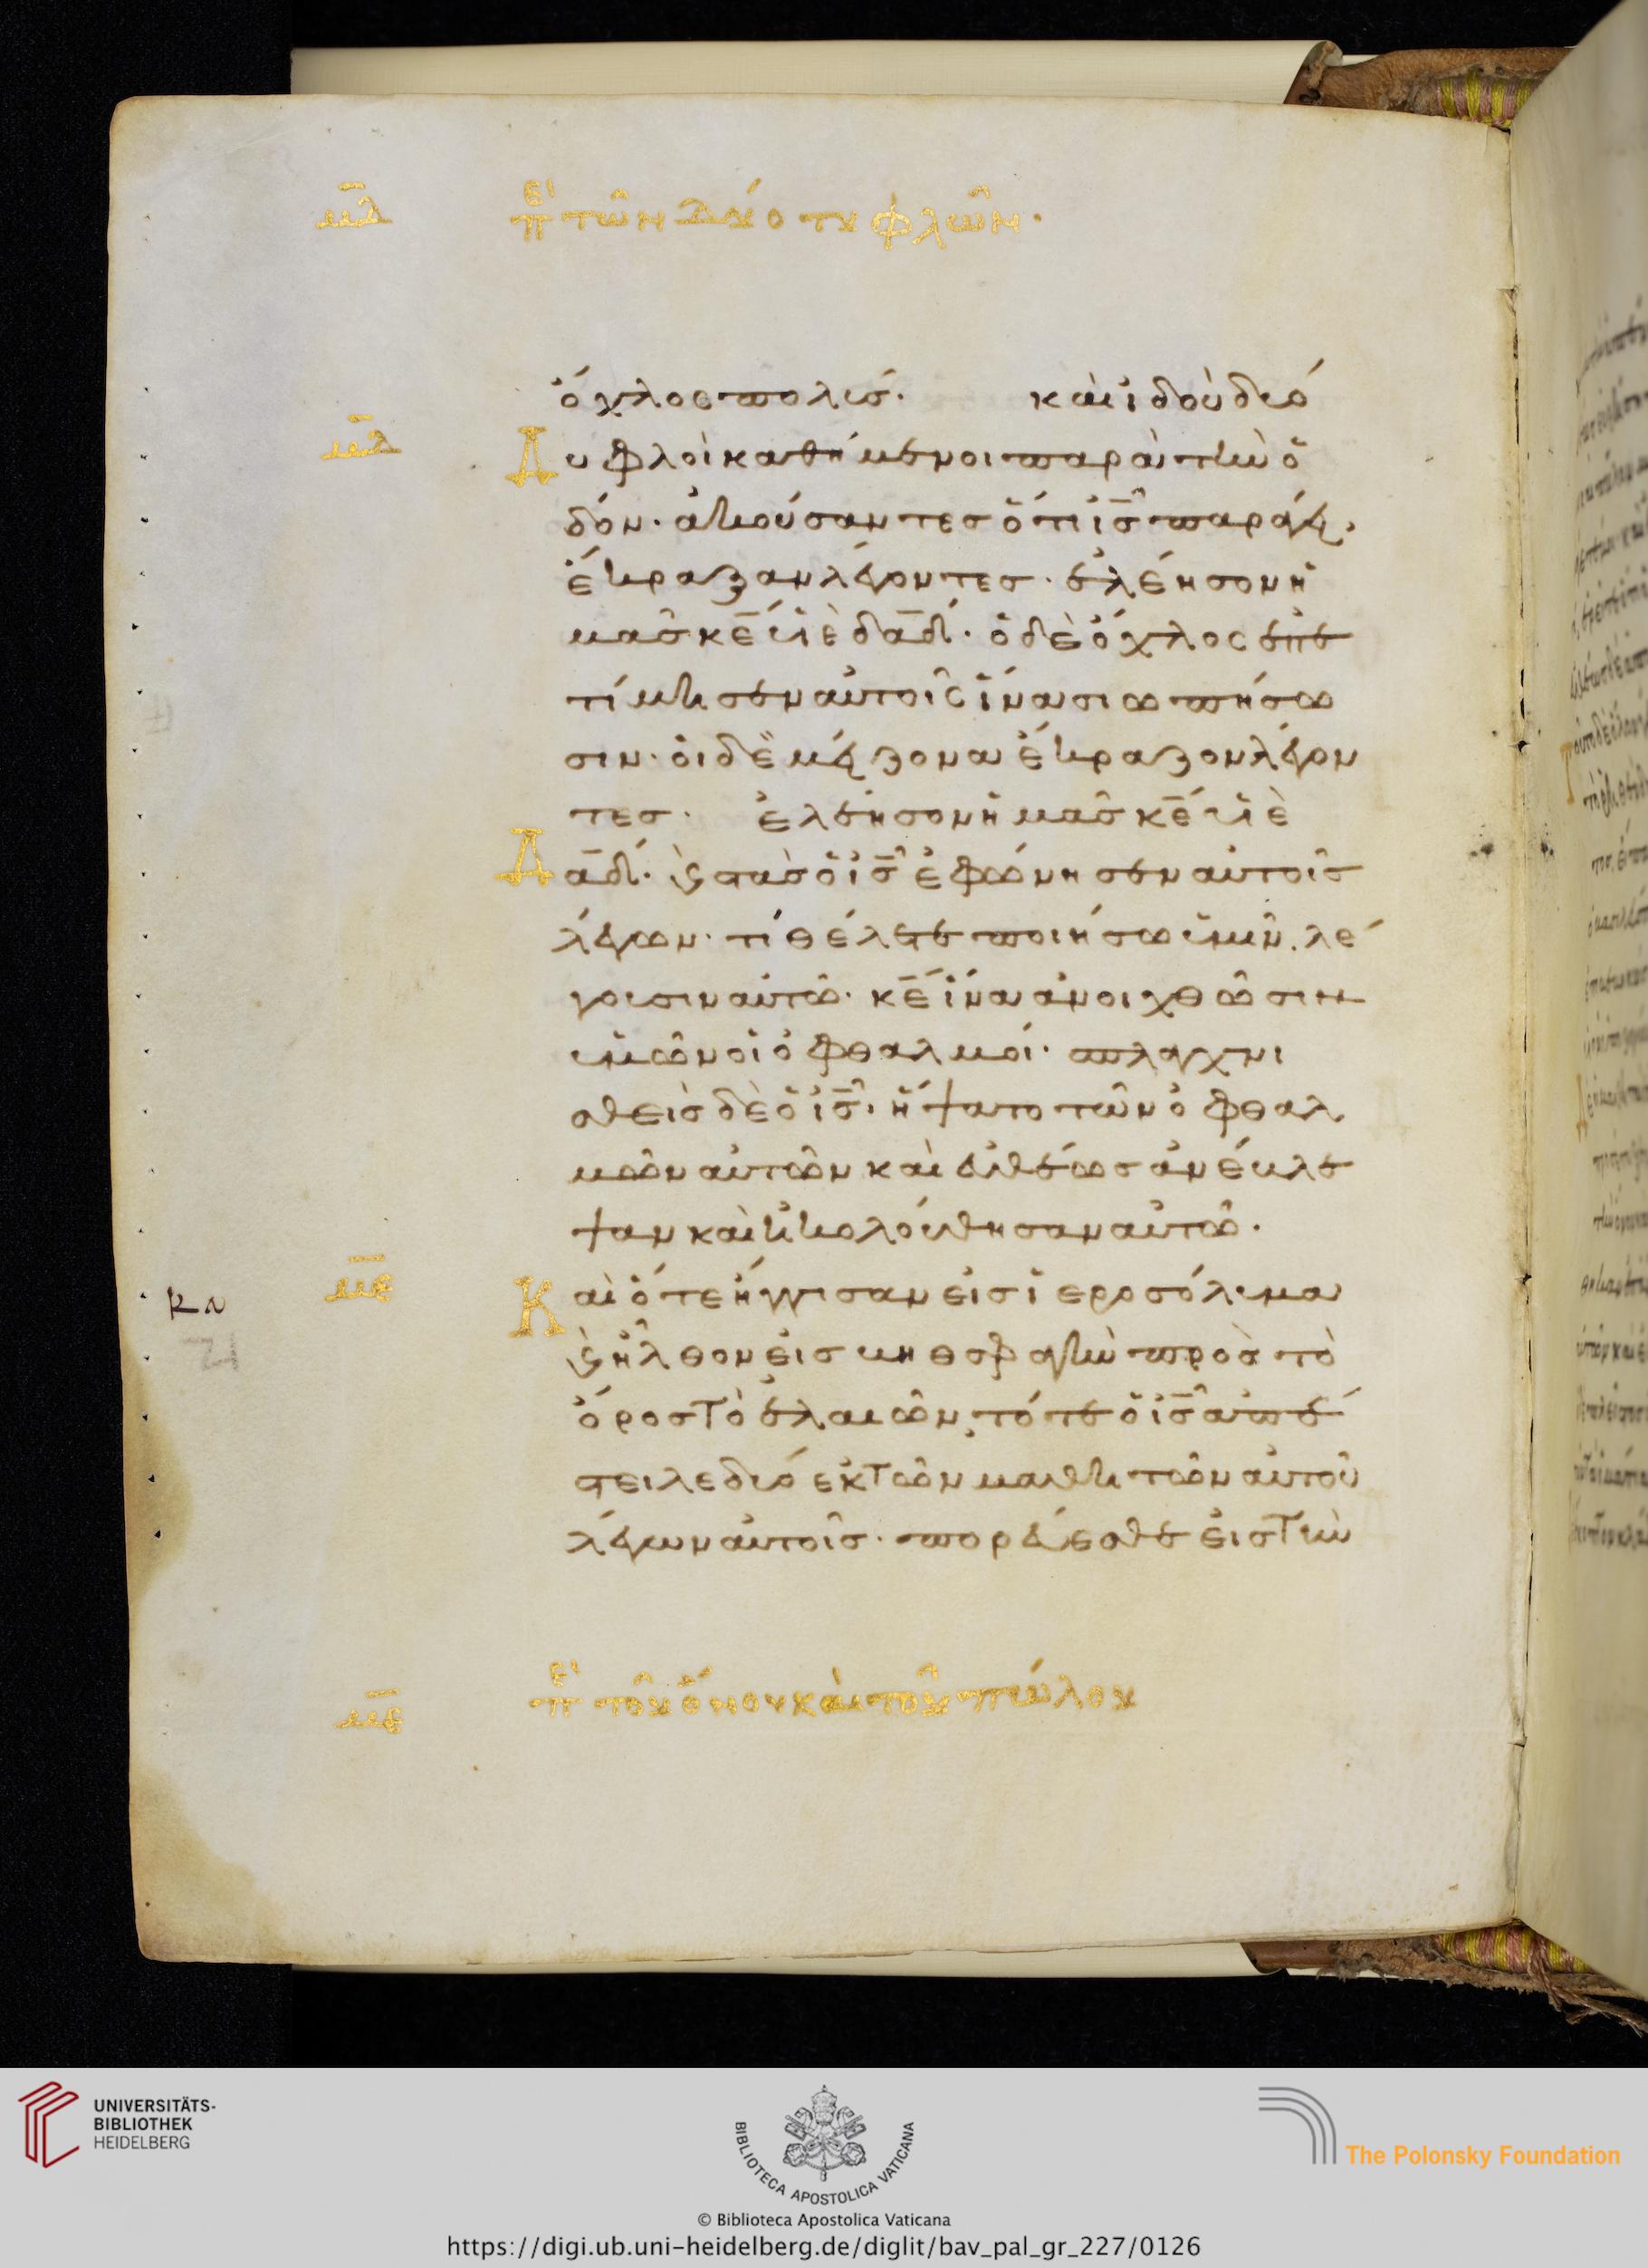 μδ πε τῶν δύο τυφλῶν·
ὄχλος πολύς. καὶ ἰδοὺ δύο
μδ Δυφλοὶ καθήμενοι παρὰ τὴν ὁ
δόν· ἀκούσαντες ὅτι ις παράγει,
ἔκραξαν λέγοντες· ἐλέησον ἡ
μᾶς κε υἱὲ δαδ· ὁ δὲ ὄχλος ἐπε
τίμησεν αὐτοῖς ἵνα σιωπήσω
σιν· οἱ δὲ μείζονα ἔκραζον λέγον
τες· ἐλεησον ἡμᾶς κε υἱὲ
Δαδ· ϗ στὰς ὁ ις ἐφώνησεν αὐτοῖς
λέγων· τί θέλετε ποιήσω ὑμῖν. λέ
γουσιν αὐτῶ· κε ἵνα ἀνοιχθῶσιν
ἡμῶν οἱ ὀφθαλμοί· σπλαγχνι
σθεὶς δὲ ὁ ις· ἥψατο τῶν ὀφθαλ
μῶν αὐτῶν καὶ εὐθέως ἀνέβλε
ψαν καὶ ἠκολούθησαν αὐτῶ·
κα με Καὶ ὅτε ἤγγισαν εἰς ἱεροσόλυμα
ϗ ἦλθον εἰς βηθσφαγὴν πρὸς τὸ
ὄρος τὸ ἐλαιῶν, τότε ὁ ις ἀπέ
στειλε δύο ἐκ τῶν μαθητῶν αὐτοῦ
λέγων αὐτοῖς· πορεύεσθε εἰς τὴν
με πε τοῦ ὄνου καὶ τοῦ πώλου
UNIVERSITÄTS-
BIBLIOTHEK
HEIDELBERG
BIBLIOTECA APOSTOLICA VATICANA
The Polonsky Foundation
© Biblioteca Apostolica Vaticana
https://digi.ub.uni-heidelberg.de/diglit/bav_pal_gr_227/0126